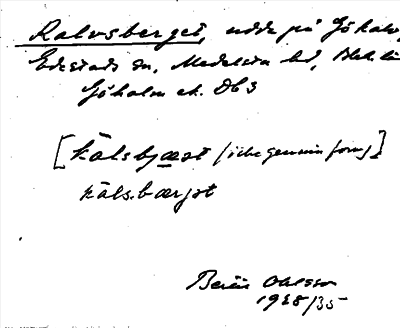 Kalvsberget, udde på Göholm,
Edestads sn, Medelsta hd, Blek. län
Göholm ek. Db3
[kālsbjæst (icke genuin form)]
kālsbærjət
Bertil Ohlsson
1928/35